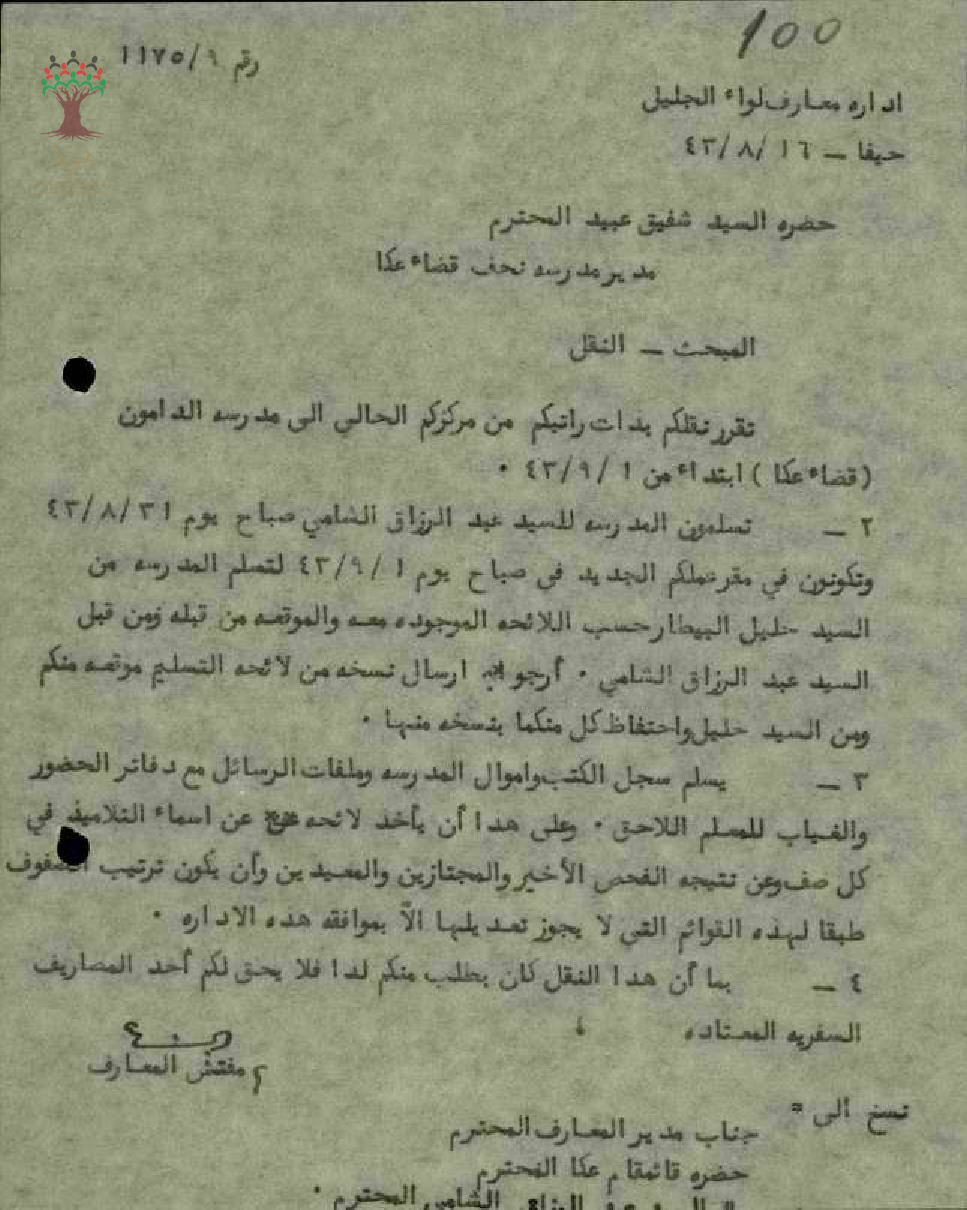 100
رقم ١١٧٥/٩
اداره معارف لواء الجليل
حيفا ــ ١٦ /٨ /٤٣
حضره السيد شفيق عبيد المحترم
مدير مدرسه نحف قضاء عكا
المبحث ــ النقل
تقرر نقلكم بذات راتبكم من مركزكم الحالى الى مدرسه الدامون
(قضاء عكا ) ابتداء من ١ /٩ /٤٣ ٠
٢ ــ تسلمون المدرسه للسيد عبد الرزاق الشامي صباح يوم ٣١ /٨ /٤٣
وتكونون في مقر عملكم الجديد فى صباح يوم ١ /٩ /٤٣ لتسلم المدرسه من
السيد خليل البيطار حسب اللائحه الموجوده معه والموقعه من قبله ومن قبل
السيد عبد الرزاق الشامي ٠ أرجو ارسال نسخه من لائحه التسليم موقعه منكم
ومن السيد خليل واحتفاظ كل منكما بنسخه منها ٠
٣ ــ يسلم سجل الكتب واموال المدرسه وملفات الرسائل مع دفاتر الحضور
والغياب للمسلم اللاحق ٠ وعلى هذا أن يأخذ لائحه عن اسماء التلاميذ في
كل صف وعن نتيجه الفحص الأخير والمجتازين والمعيدين وأن يكون ترتيب الصفوف
طبقا لهذه القوائم التى لا يجوز تعديلها الاّ بموافقه هذه الاداره ٠
٤ ــ بما أن هذا النقل كان بطلب منكم لذا فلا يحق لكم أخذ المصاريف
السفريه المعتاده
مفتش المعارف
نسخ الى =
جناب مدير المعارف المحترم
حضره قائمقام عكا المحترم
الرزاق الشامي المحترم ٠